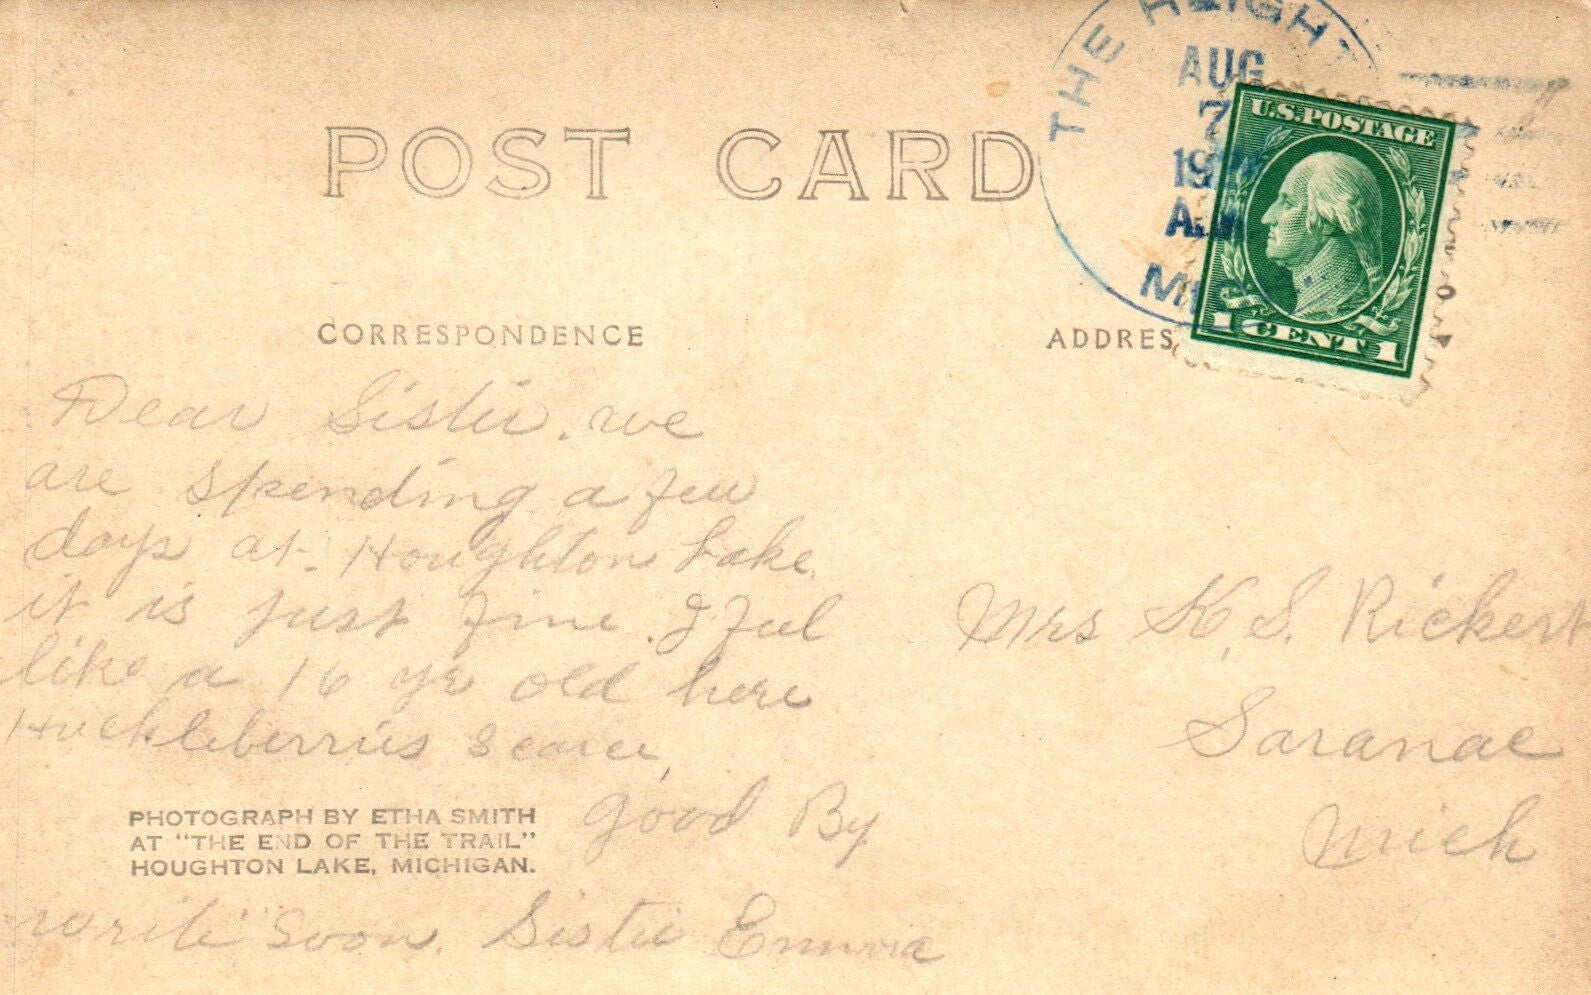 THE HEIGHT
AUG
7
A.M
U.S. POSTAGE
1 CENT 1
POST CARD
CORRESPONDENCE
ADDRES
Dear Sister. we
are spending a few
days at Houghton Lake
it is just fine. I feel
like a 16 yr old here
Huckleberries scarce,
good By
write soon. Sister Emma
PHOTOGRAPH BY ETHA SMITH
AT "THE END OF THE TRAIL"
HOUGHTON LAKE, MICHIGAN.
Mrs K. S. Rickert
Saranac
Mich